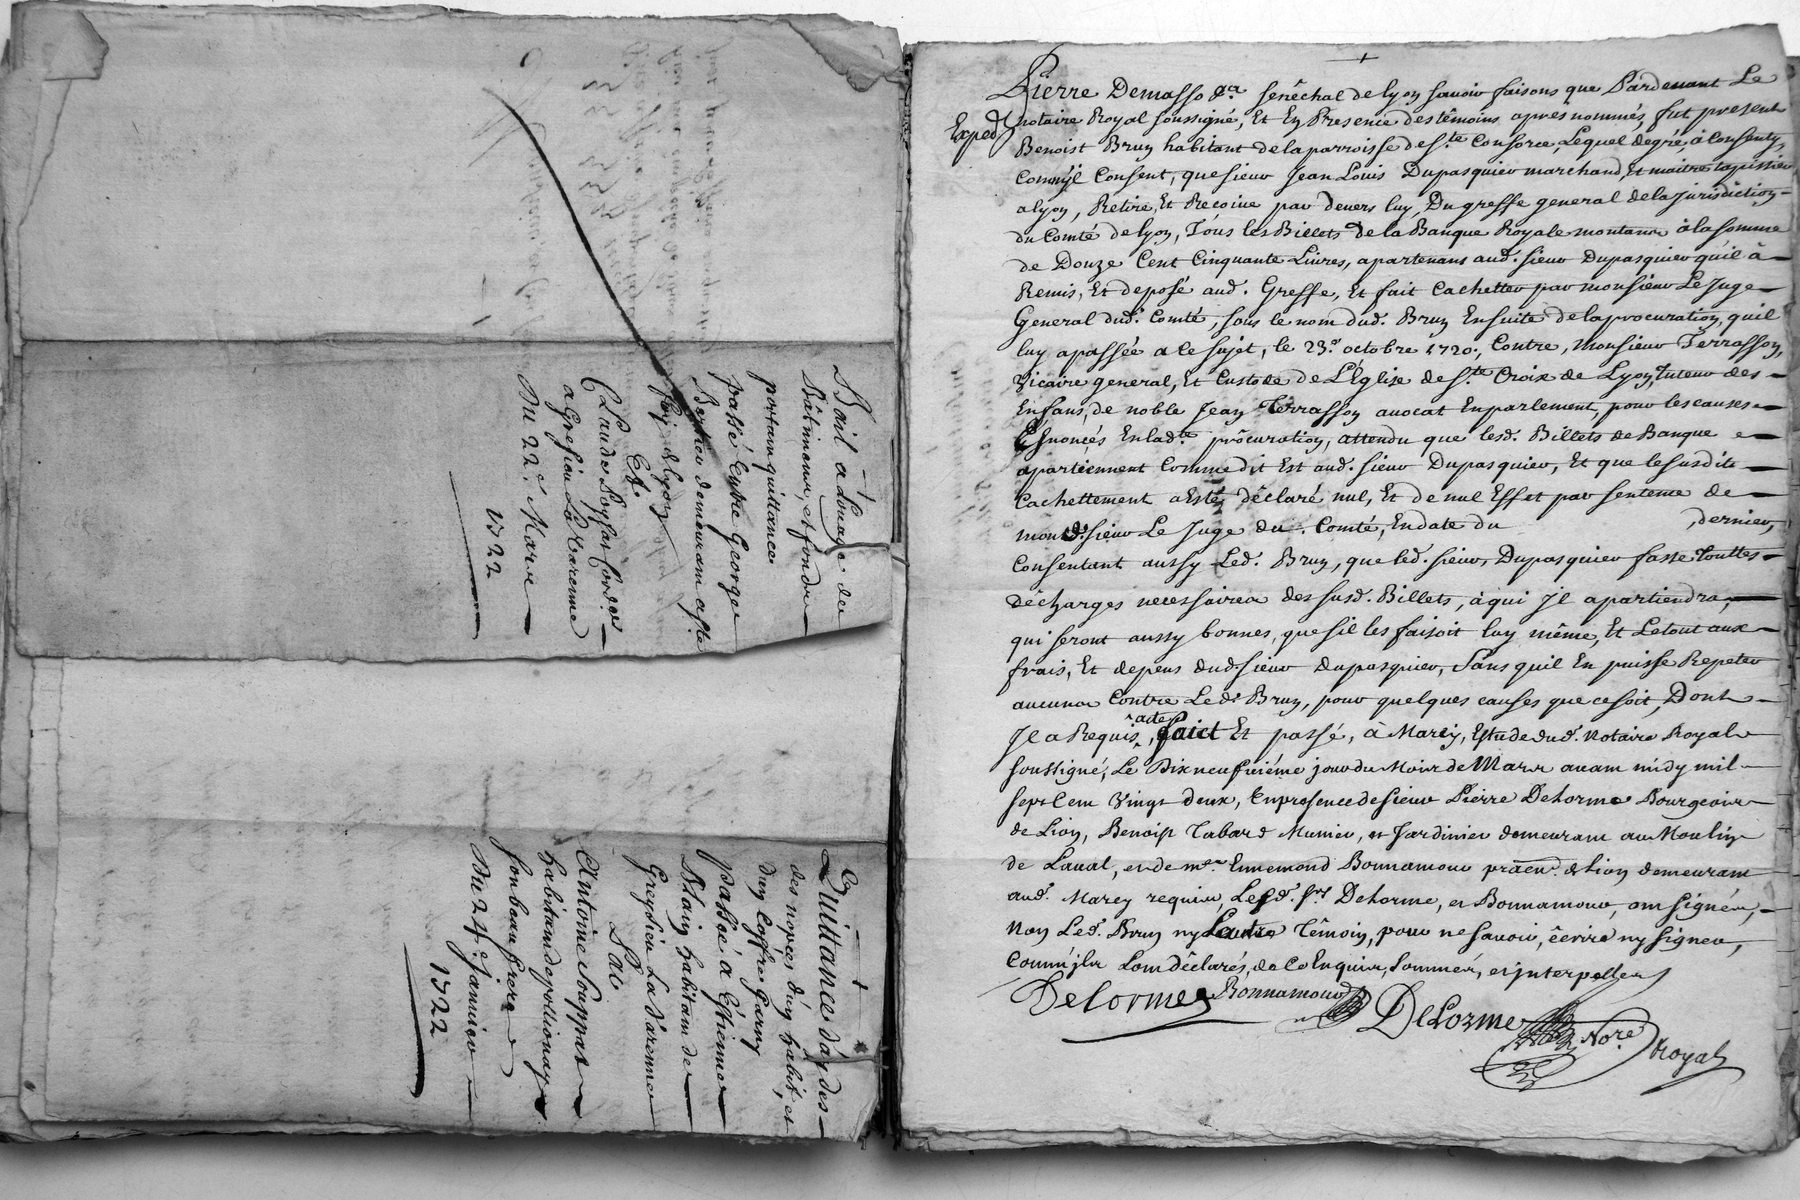 Bail a Louage de
Bâtiment, et fonds
portant quittance
passé Entre George
Bertier demeurant a Ste
foy les lyon
Et
Claude Soffat Cordr
a Gresieu La Varenne
Du 22e Mars
1722
Quittance d'aydes
des nopces d'un habit, et
d'un Coffre Garny
passée a Estienne
Blain habitant de
Greysieu La Varenne
Par
Antoine Souppat
habitant de pollionay
son beau frere
Du 24e Janvier
1722
Exped
Pierre Demasso &ca Senêchal de lyon Savoir faisons que Pardevant Le
notaire Royal soussigné, Et En Presence des têmoins apres nommés, fut present
Benoist Brun habitant de la parroisse de Ste Consorce, Lequel de gré, à Consenty,
Comm'jl Consent, que sieur Jean Louis Dupasquier marchand, Et maitre tapissier
a lyon, Retire, Et Recoive par devers luy, Du greffe general de la Jurisdiction
du Comté de lyon, Tous les Billets de la Banque Royale montant à la somme
de Douze Cent Cinquante Livres, apartenans aud. sieur Dupasquier qu'il à
Remis, Et deposé aud. Greffe, Et fait Cachetter par monsieur Le Juge
General dud. Comté, sous le nom dud. Brun Ensuite de la procuration, quil
luy a passée a Ce Sujet, le 23e octobre 1720, Contre, Monsieur Terrasson,
Vicaire general, Et Custode de L'Église de Ste Croix de Lyon, tuteur des
Enfans, de noble Jean Terrasson avocat En parlement, pour les causes
Ênoncés En lad.te procuration, attendu que lesd. Billets de Banque
apartiennent Comme dit Est aud. sieur Dupasquier, Et que le susdit
Cachettement a Esté déclaré nul, Et de nul Effet par sentence de
mond. sieur Le Juge du Comté, En date du dernier,
Consentant aussy Led. Brun, que led. sieur Dupasquier fasse touttes
dêcharges necessaires des susd. Billets, à qui Jl apartiendra,
qui seront aussy bonnes, que s'il les faisoit luy même, Et Le tout aux
frais, Et depens dud. sieur Dupasquier, Sans quil En puisse Repeter
aucuns Contre Led. Brun, pour quelques causes que ce soit, Dont
Jl a Requis acte, faict Et passé, à Marcy, Estude dud. Notaire Royal
soussigné, Le Dix neufviéme jour du Mois de Mars avant midy mil
sept Cent Vingt deux, En presence de sieur Pierre Delorme Bourgeois
de Lion, Benoist Tabard Munier, et Jardinier demeurant au Moulin
de Laval, et de me. Ennemond Bonnamour praën. de Lion demeurant
aud. Marcy requis, Lesd. srs Delorme, et Bonnamour, ont signés,
Non Led. Brun ny L'autre Têmoin, pour ne savoir, êcrire ny signer,
Comm'jls L'ont dêclarés, de Ce Enquis, Sommés, et jnterpellés
Delorme Bonnamour
DeLorme Nore Royal